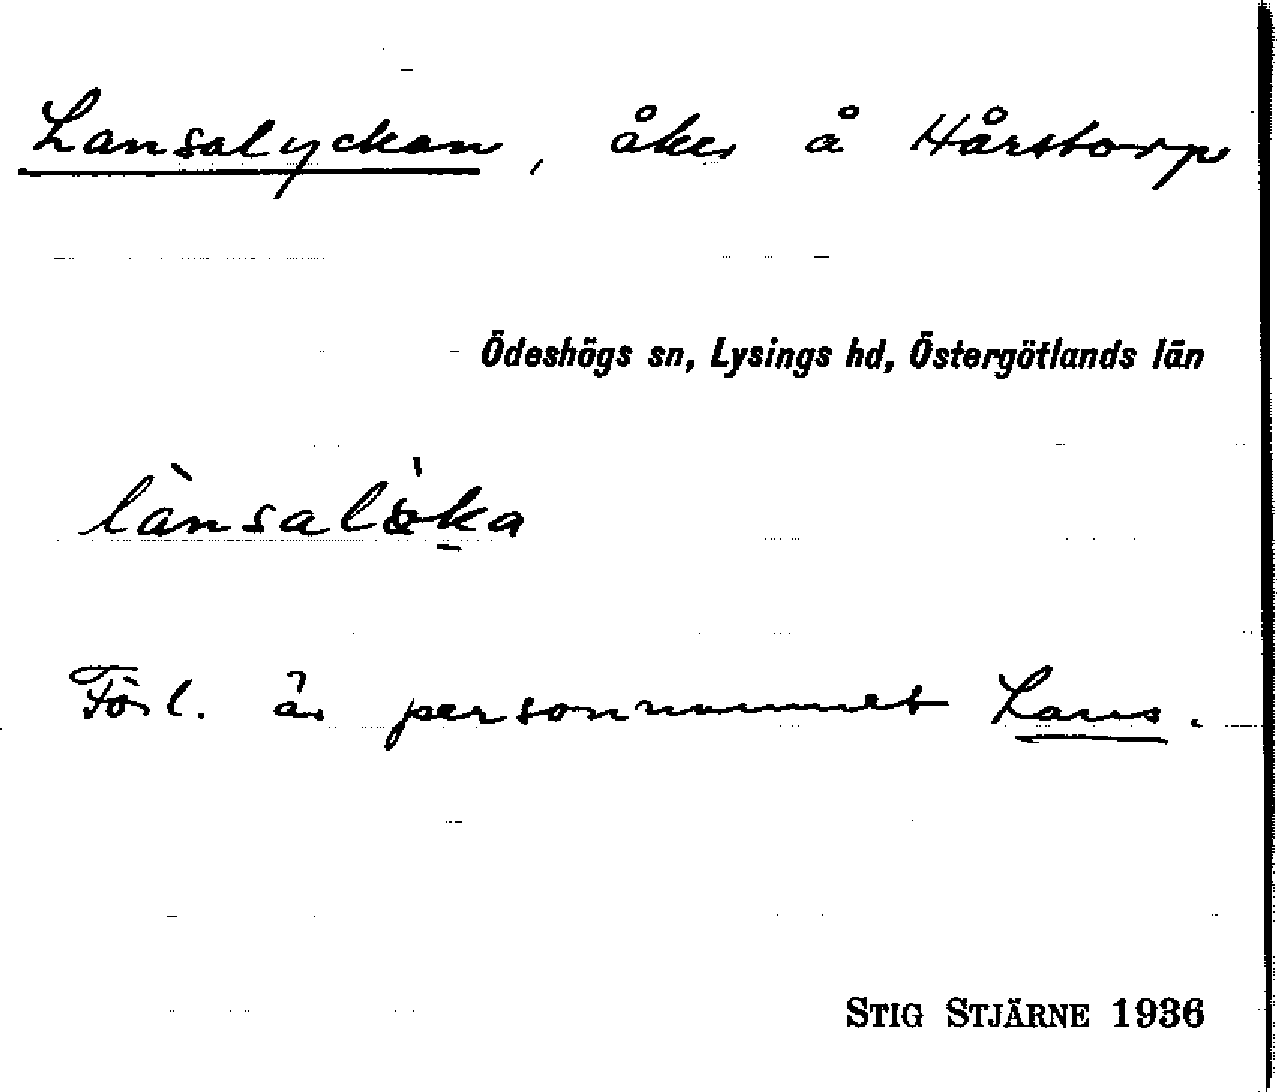 Lansalyckan, åker å Hårstorp
Ödeshögs sn, Lysings hd, Östergötlands län
lànsalàka
Förl. är personnamnet Lans.
STIG STJÄRNE 1936